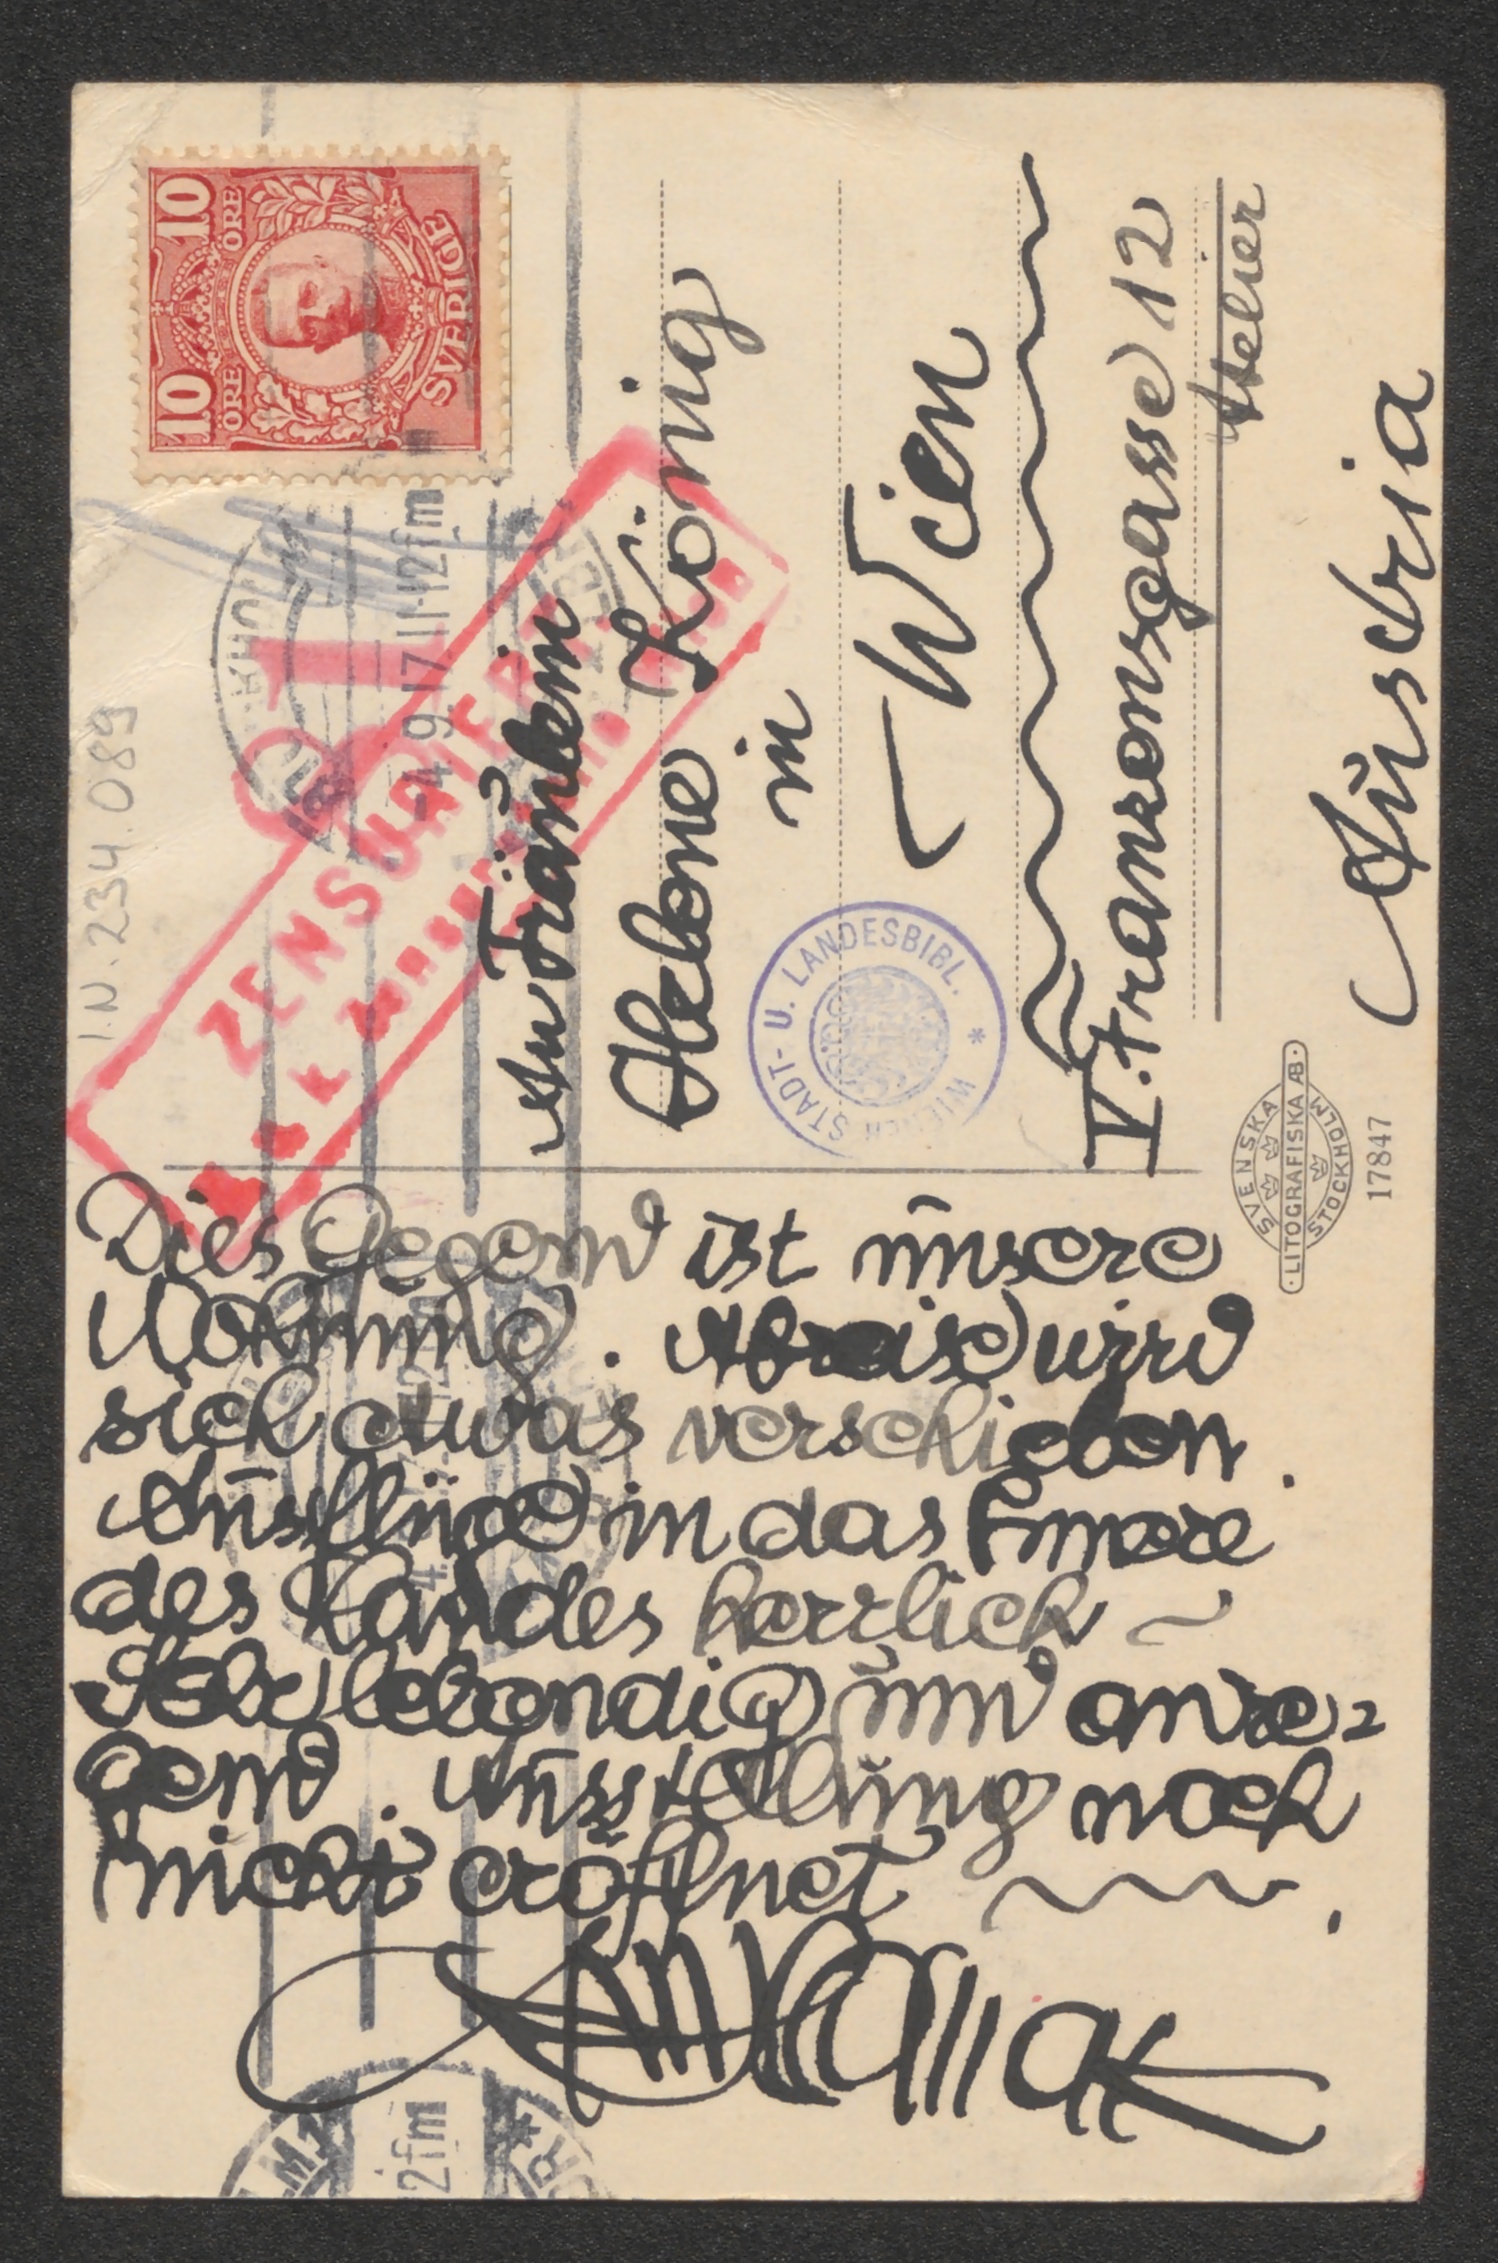 10 ÖRE
10 ÖRE
SVERIGE
I.N. 234.089
-4. 9. 17 11-12 fm
ZENSURIERT
An Fräulein
Helene König
in
Wien
V. Franzensgasse 12
Atelier
Austria
WIENER STADT- U. LANDESBIBL. *
SVENSKA
LITOGRAFISKA AB
STOCKHOLM
17847
Dies Gegend ist unsere
Wohnung. Abreise wird
sich etwas verschieben.
Ausflüge in das Innere
des Landes herrlich ~
Sehr lebendig und anre=
gend. Ausstellung noch
nicht eröffnet ~~~.
2 fm